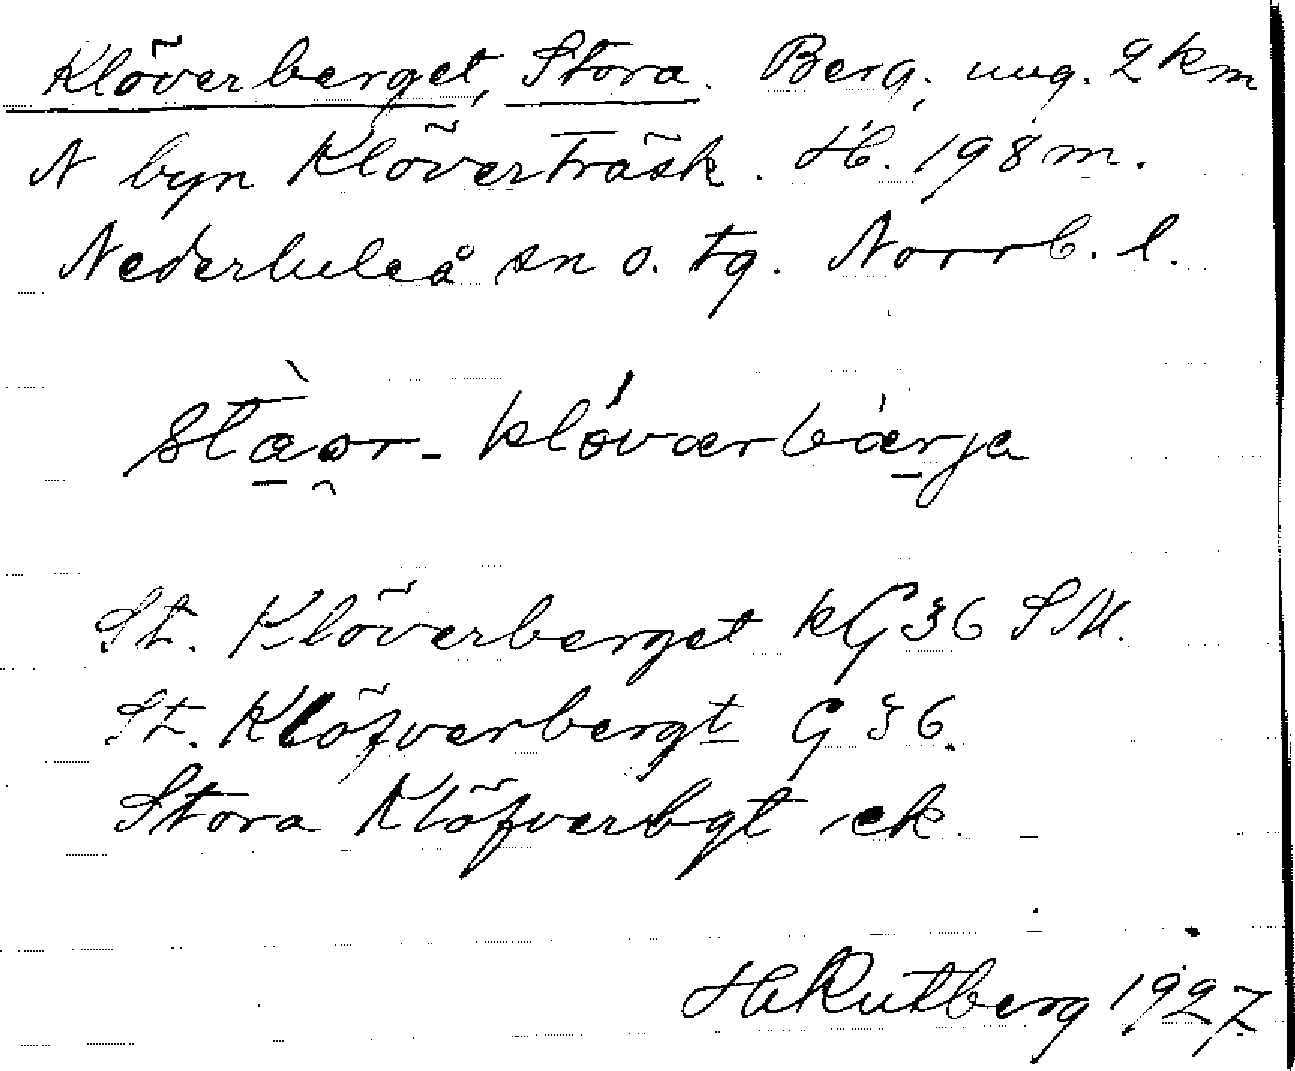 Klöverberget, Stora. Berg, ung. 2 km
N byn Klöverträsk. H. 198 m.
Nederluleå sn o. tg. Norrb. l.
stàor- klóvärbärja
St. Klöverberget kG 36 SM.
St. Klöfverbergt G 36.
Stora Klöfverbgt ek.
H Rutberg 1927